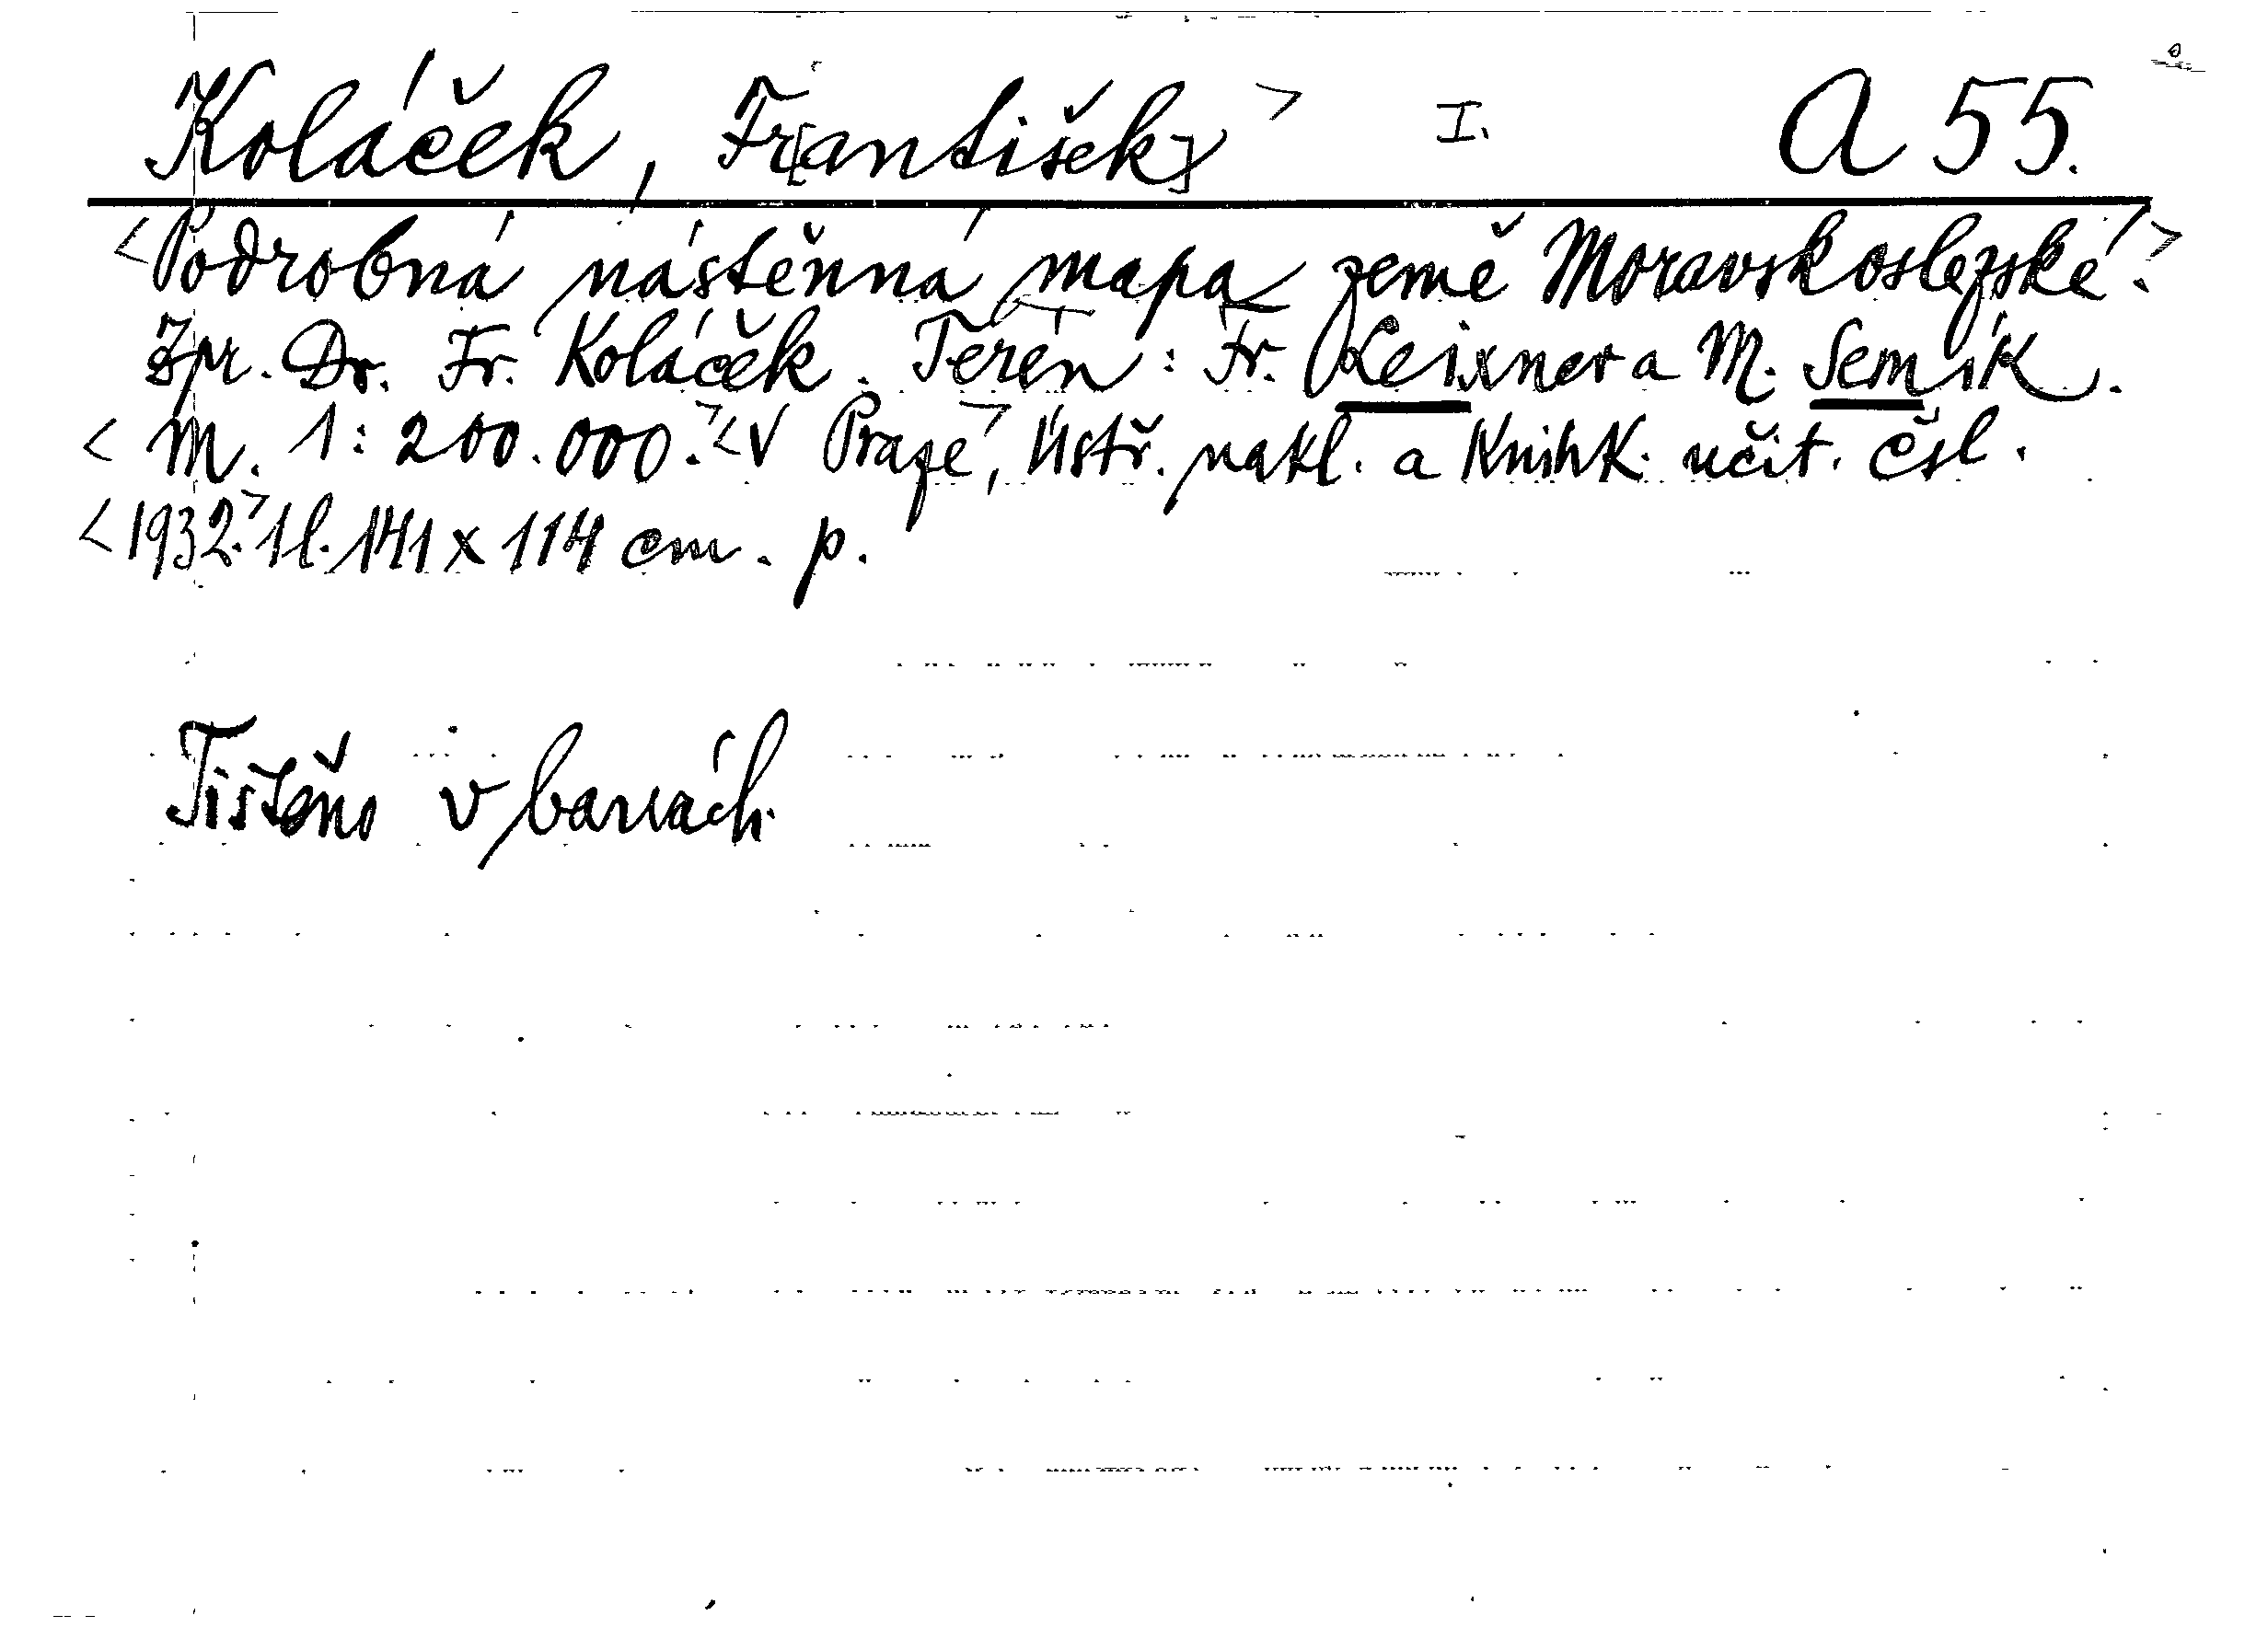 Koláček, Fr[antišek] > I. A 55.
<Podrobná nástěnná mapa země Moravskoslezské.>
Zpr. Dr. Fr. Koláček. Terén: Fr. Leixner a M. Semík.
<M. 1:200.000.> <V Praze>, Ústř. nakl. a knihk. učit. čsl.
<1932.> 1 l. 141 x 114 cm. p.
Tištěno v barvách